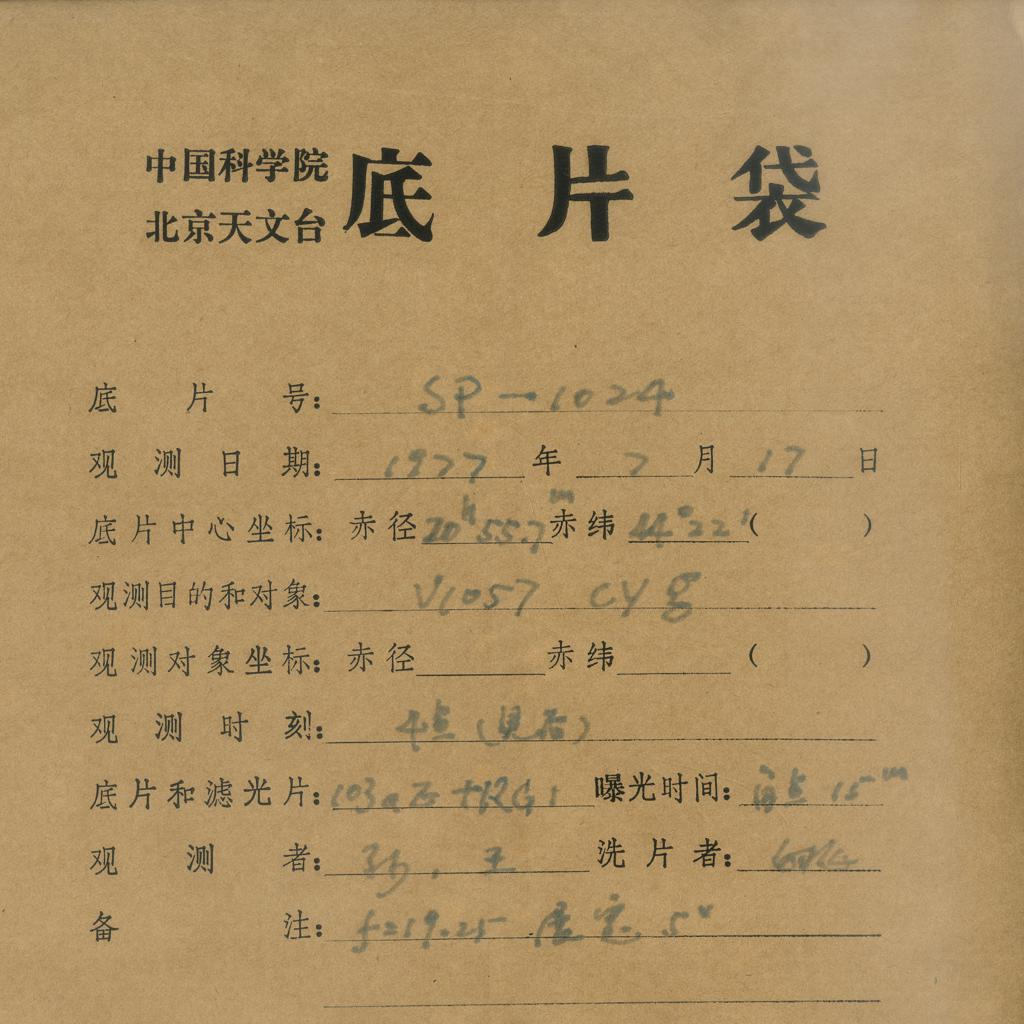 中国科学院
北京天文台
底片袋
底片号: SP-1024
观测日期: 1977年7月17日
底片中心坐标: 赤径 20h55.7m 赤纬 44°22′ ( )
观测目的和对象: V1057 CYg
观测对象坐标: 赤径 赤纬 ( )
观测时刻: 4点(见后)
底片和滤光片: 103aE+RG1 曝光时间: 每点 15m
观测者: 孙, 王 洗片者:
备注: f=19.25 5"